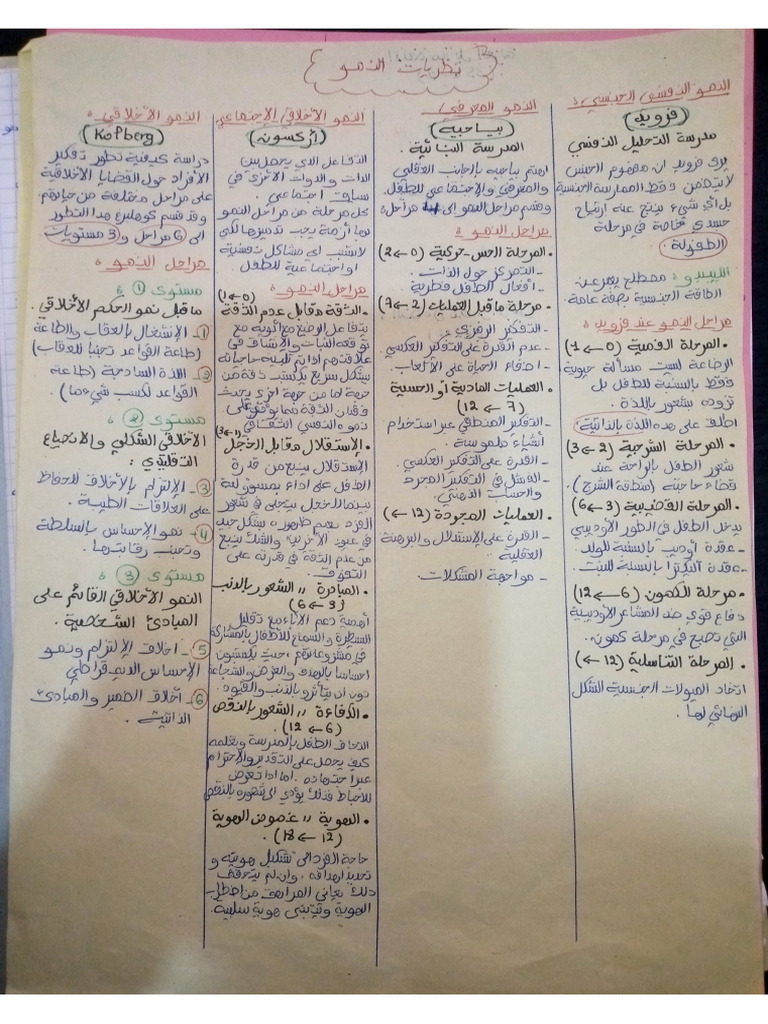 نظريات النمو
النمو النفسي الجنسي :
(فرويد)
مدرسة التحليل النفسي
يرى فرويد ان مفهوم الجنس
لا يتضمن فقط الممارسة الجنسية
بل أي شيء ينتج عنه ارتياح
جسدي خاصة في مرحلة
الطفولة.
الليبيدو : مصطلح يعبر عن
الطاقة الجنسية بصفة عامة.
مراحل النمو عند فرويد :
• المرحلة الفمية (0 ← 1)
الرضاعة ليست مسألة حيوية
فقط بالنسبة للطفل بل
تزوده بشعور باللذة.
اطلق على هذه اللذة بالذاتية.
• المرحلة الشرجية (2 ← 3)
شعور الطفل بالراحة عند
قضاء حاجته (منطقة الشرج).
• المرحلة القضيبية (3 ← 6)
يدخل الطفل في الطور الأوديبي
- عقدة أوديب بالنسبة للولد.
- عقدة أليكترا بالنسبة للبنت.
• مرحلة الكمون (6 ← 12)
دفاع قوي ضد المشاعر الأوديبية
التي تصبح في مرحلة كمون.
• المرحلة التناسلية (12 ←)
اتخاد الميولات الجنسية الشكل
النهائي لها.
النمو المعرفي :
(بياجيه)
المدرسة البنائية.
اهتم بياجيه بالجانب العقلي
والمعرفي والاجتماعي للطفل.
وقسم مراحل النمو الى 4 مراحل :
مراحل النمو :
• المرحلة الحس-حركية (0 ← 2)
- التمركز حول الذات.
- أفعال الطفل فطرية
• مرحلة ما قبل العمليات (2 ← 7)
- التفكير الرمزي.
- عدم القدرة على التفكير العكسي.
- اضفاء الحياة على الألعاب.
• العمليات المادية أو الحسية
(7 ← 12)
- التفكير المنطقي عبر استخدام
أشياء ملموسة.
- القدرة على التفكير العكسي.
- الفشل في التفكير المجرد
والحساب الذهني.
• العمليات المجردة (12 ←)
- القدرة على الاستدلال والبرهنة
العقلية
- مواجهة المشكلات.
النمو الأخلاقي الإجتماعي
(أركسون)
التفاعل الذي يحصل بين
الذات و الذوات الأخرى في
سياق اجتماعي.
كل مرحلة من مراحل النمو
لها أزمة يجب تدبيرها لكي
لا تسبب اي مشاكل نفسية
او اجتماعية للطفل.
مراحل النمو :
(0 ← 1)
• الثقة مقابل عدم الثقة
يتفاعل الرضيع مع أبويه مع
توقعه الثبات والإنصاف في
علاقتهم اذا تم تلبية حاجياته
بشكل سريع يكتسب ثقة من
جهة اما من جهة اخرى يحدث
فقدان الثقة مما يؤثر على
نموه النفسي
(1 ← 3)
• الإستقلال مقابل الخجل
الإستقلال ينبع من قدرة
الطفل على اداء بمسؤولية
بينما الخجل يتجلى في شعور
الفرد بعدم ظهوره بشكل جيد
في عيون الأخرين والشك ينبع
من عدم الثقة في قدرته على
التفوق.
• المبادرة // الشعور بالذنب
(3 ← 6)
أهمية دعم الأباء مع تقليل
السيطرة والسماح للأطفال بالمشاركة
في مشروعاتهم، حيث يكتسبون
احساسا بالهدف والغرض والشجاعة
دون ان يتأثرو بالذنب والقيود.
• الكفاءة // الشعور بالنقص
(6 ← 12)
التحاق الطفل بالمدرسة وتعلمه
كيف يحصل على التقدير والاحترام
عبر اجتهاده. اما اذا تعرض
للأحباط فذلك يؤدي الى شعوره بالنقص
• الهوية // غموض الهوية
(12 ← 18).
حاجة الفرد الى تشكيل هويته و
تحديد اهدافه، وان لم يتحقق
ذلك يعاني المراهق من اضطراب
الهوية وتبني هوية سلبية.
النمو الأخلاقي :
(Kolberg)
دراسة كيفية تطور تفكير
الأفراد حول القضايا الأخلاقية
على مراحل مختلفة من حياتهم،
وقد قسم كوهلبرغ هذا التطور
الى 6 مراحل و 3 مستويات
مراحل النمو :
مستوى 1 :
ما قبل نمو الحكم الأخلاقي.
1- الإنشغال بالعقاب والطاعة
(طاعة القواعد تجنبا للعقاب)
2- اللذة الساذجة (طاعة
القواعد لكسب شيء ما).
مستوى 2 :
الأخلاقي الشكلي والانصياع
التقليدي :
3- الإلتزام بالأخلاق للحفاظ
على العلاقات الطيبة.
4- نمو الإحساس بالسلطة
وتجنب رقابتها.
مستوى 3 :
النمو الأخلاقي القائم على
المبادئ الشخصية.
5- اخلاق الإلتزام ونمو
الإحساس الديمقراطي
6- أخلاق الضمير والمبادئ
الذاتية.